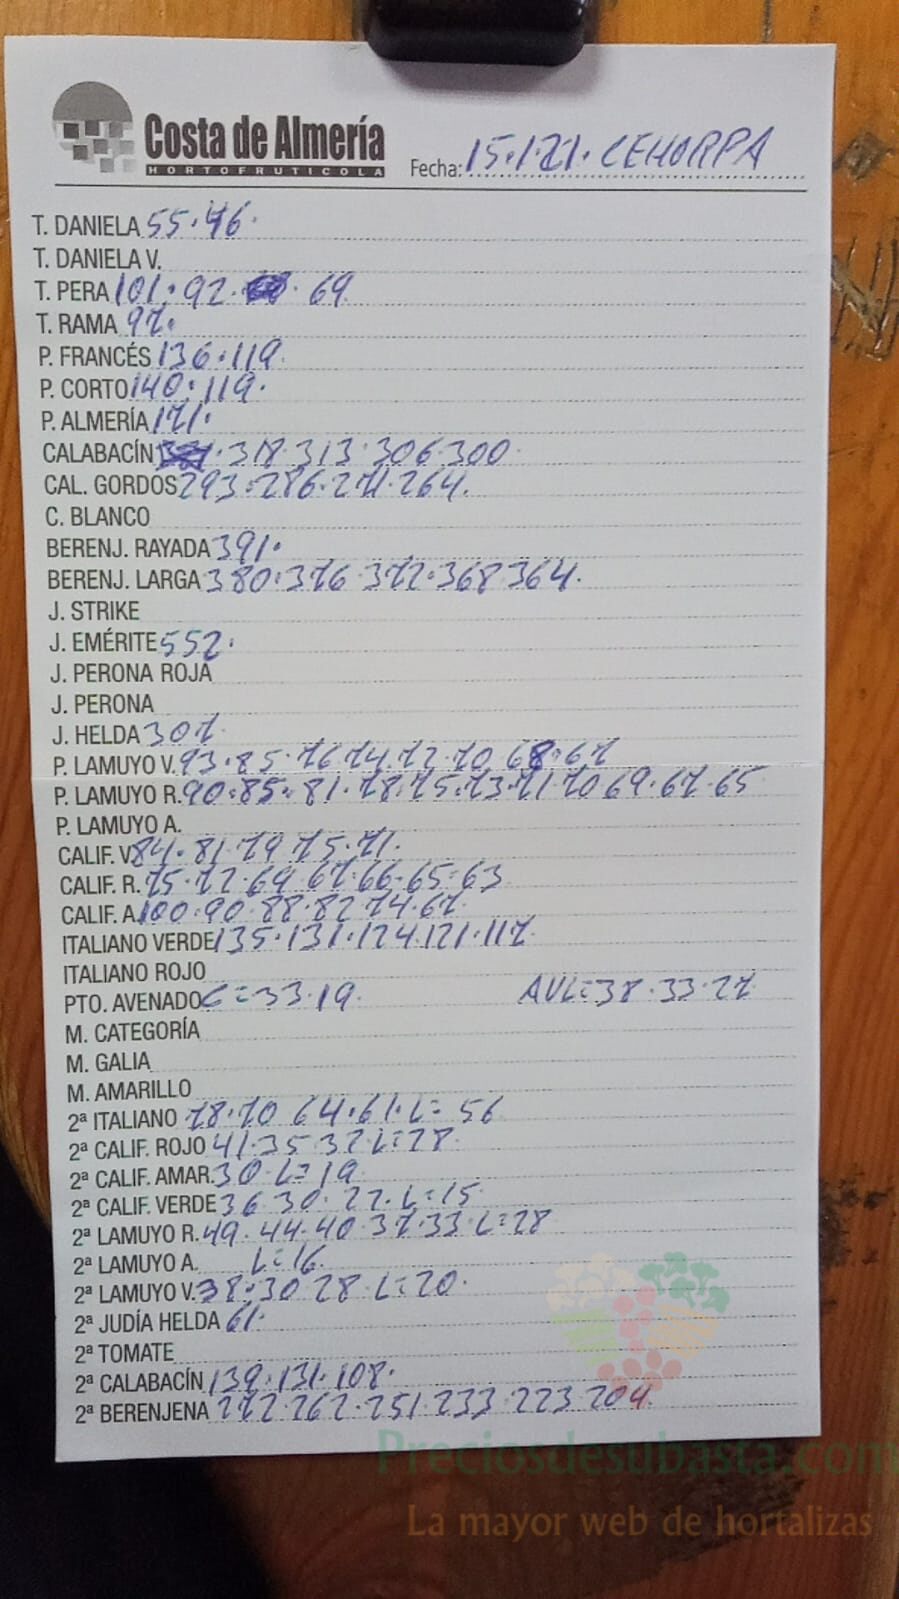 Costa de Almería
HORTOFRUTICOLA
Fecha: 15.1.21. CEHORPA
T. DANIELA 55.46.
T. DANIELA V.
T. PERA 101.92. 69
T. RAMA 97.
P. FRANCÉS 136.119
P. CORTO 140.119.
P. ALMERÍA 171.
CALABACÍN 318.313.306.300
CAL. GORDOS 293.286.271.264.
C. BLANCO
BERENJ. RAYADA 391.
BERENJ. LARGA 380.376 372.368 364.
J. STRIKE
J. EMÉRITE 552.
J. PERONA ROJA
J. PERONA
J. HELDA 307
P. LAMUYO V. 93.85.76 74.72.70 68.67
P. LAMUYO R. 90.85.81.78.75.73.71 70 69.67.65
P. LAMUYO A.
CALIF. V 84.81.79 75.71.
CALIF. R. 75.72.69 67.66.65.63
CALIF. A. 100.90.88.82 74.67
ITALIANO VERDE 135.131.124.121.117
ITALIANO ROJO
PTO. AVENADO C=33.19. AVL=38.33.27
M. CATEGORÍA
M. GALIA
M. AMARILLO
2ª ITALIANO 78.70 64.61.L= 56
2ª CALIF. ROJO 41.35 32 L=28
2ª CALIF. AMAR. 30 L=19
2ª CALIF. VERDE 36 30. 22.L=15
2ª LAMUYO R. 49.44.40 37.33 L=28
2ª LAMUYO A. L=16
2ª LAMUYO V. 38.30 28 L=20.
2ª JUDÍA HELDA 61.
2ª TOMATE
2ª CALABACÍN 139.131.108.
2ª BERENJENA 272.262.251.233.223 204
Preciosdesubasta.com
La mayor web de hortalizas